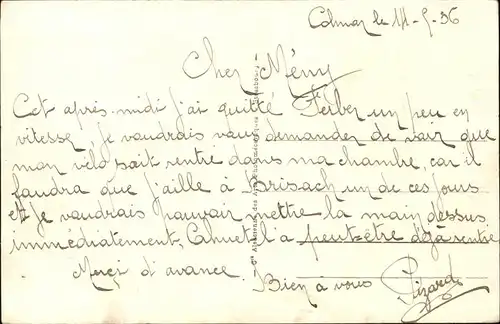 Colmar le 11-5-36
Cher Mény
Cet après-midi j'ai quitté Ferber un peu en
vitesse, je voudrais vous demander de voir que
mon vélo soit rentré dans ma chambre, car il
faudra que j'aille à Brisach un de ces jours
et je voudrais pouvoir mettre la main dessus
immédiatement, l'a peut-être déjà rentré
Merci d'avance.
Bien à vous